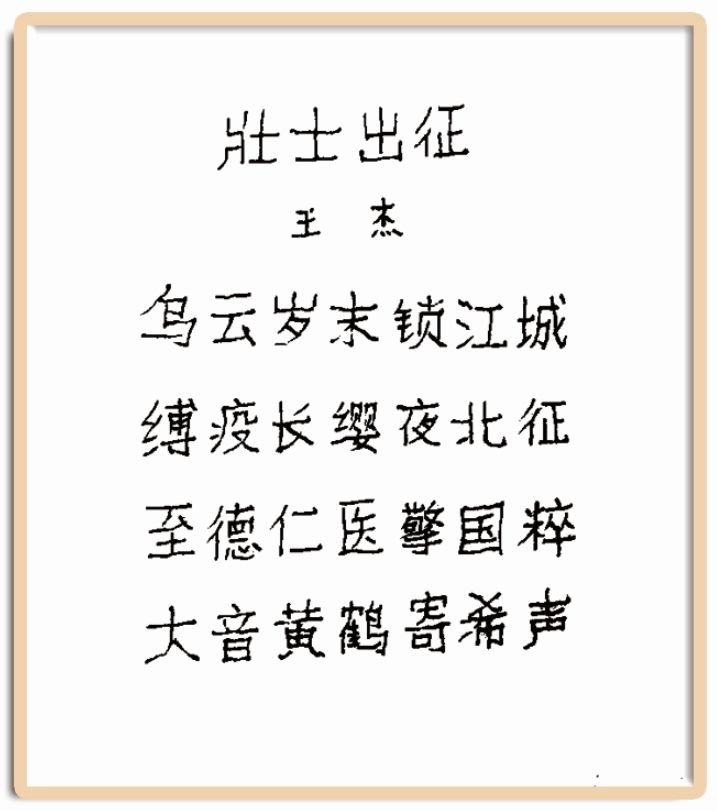 壯士出征
王 杰
乌云岁末锁江城
缚疫长缨夜北征
至德仁医擎国粹
大音黄鹤寄希声